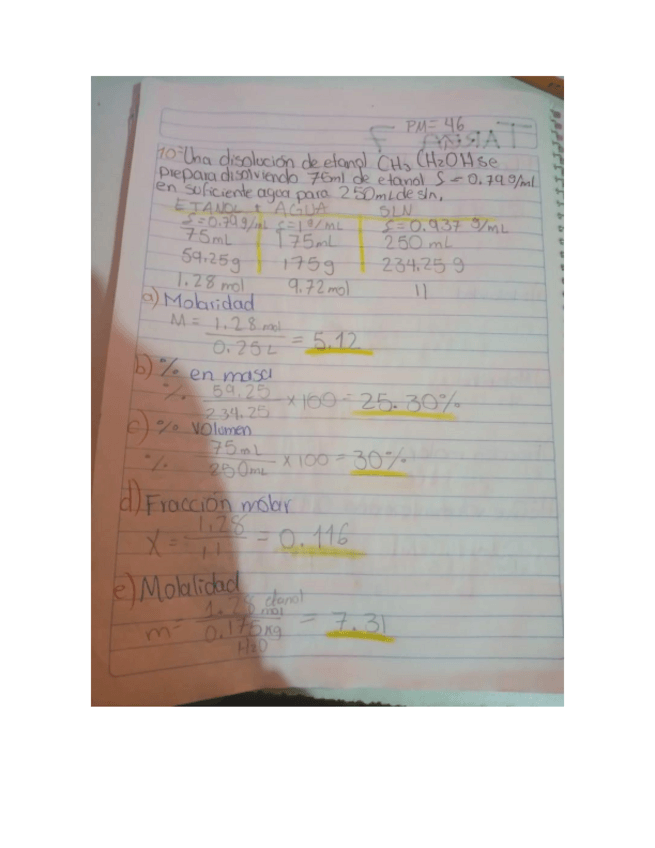 PM= 46
TAREA 7
10- Una disolución de etanol CH3 CH2OH se
prepara disolviendo 75ml de etanol δ = 0.79g/mL
en suficiente agua para 250mL de sln,
ETANOL + AGUA SLN
δ=0.79g/mL δ=1g/mL δ=0.937 g/mL
75mL 175mL 250 mL
59.25g 175g 234.25 g
1.28 mol 9.72mol 11
a) Molaridad
M = 1.28 mol
0.25L = 5.12
b) % en masa
% 59.25
234.25 x100 = 25.30%
c) % volumen
% 75mL
250mL x100 = 30%
d) Fracción molar
X = 1.28
11 = 0.116
e) Molalidad
m= 1.28 mol etanol
0.175kg = 7.31
H2O